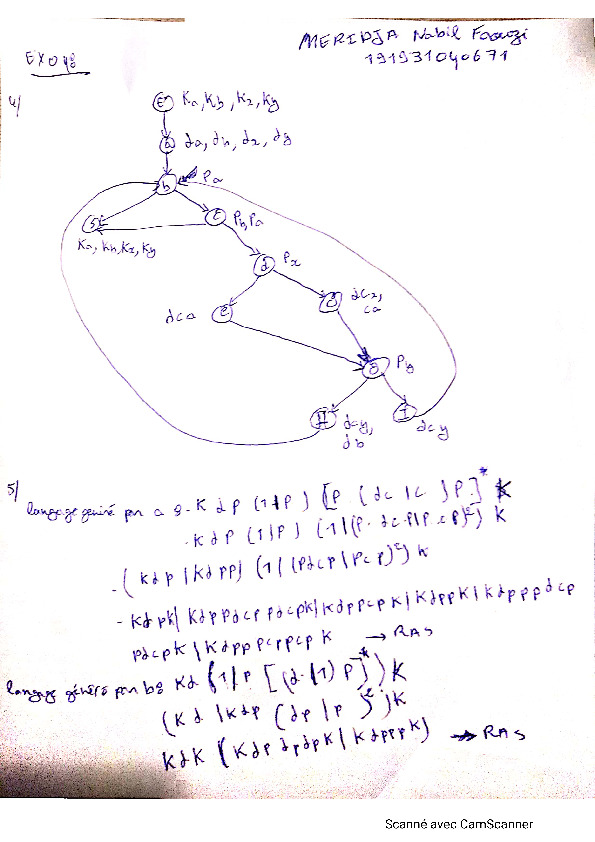 MERIDJA Nabil Faouzi
191931040671
EXO
4/
Ka, Kb, Kx, Ky
da, db, dx, dy
b Pa
Pb, Pa
Ka, Kb, Kx, Ky
d Px
dcx,
ca
dca e
Py
H dcy,
db
I dcy
5/
langage généré par a : K d P (1/P) [P (dc | c) P]* K
- K d P (1|P) (1|(P dcP|P c P)²) K
- (Kdp | Kdpp) (1 | (Pdcp | Pcp)²) K
- Kdpk | Kdppdcppdcpk | Kdppcpk | Kdppk | Kdpppdcp
pdcpk | Kdpppcppcp K → RAS
langage généré par b : Kd (1/P [(d|1) P]*) K
(Kd | Kdp (dp | p)²) K
KdK (Kdpdpdpk | Kdpppk) → RAS
Scanné avec CamScanner